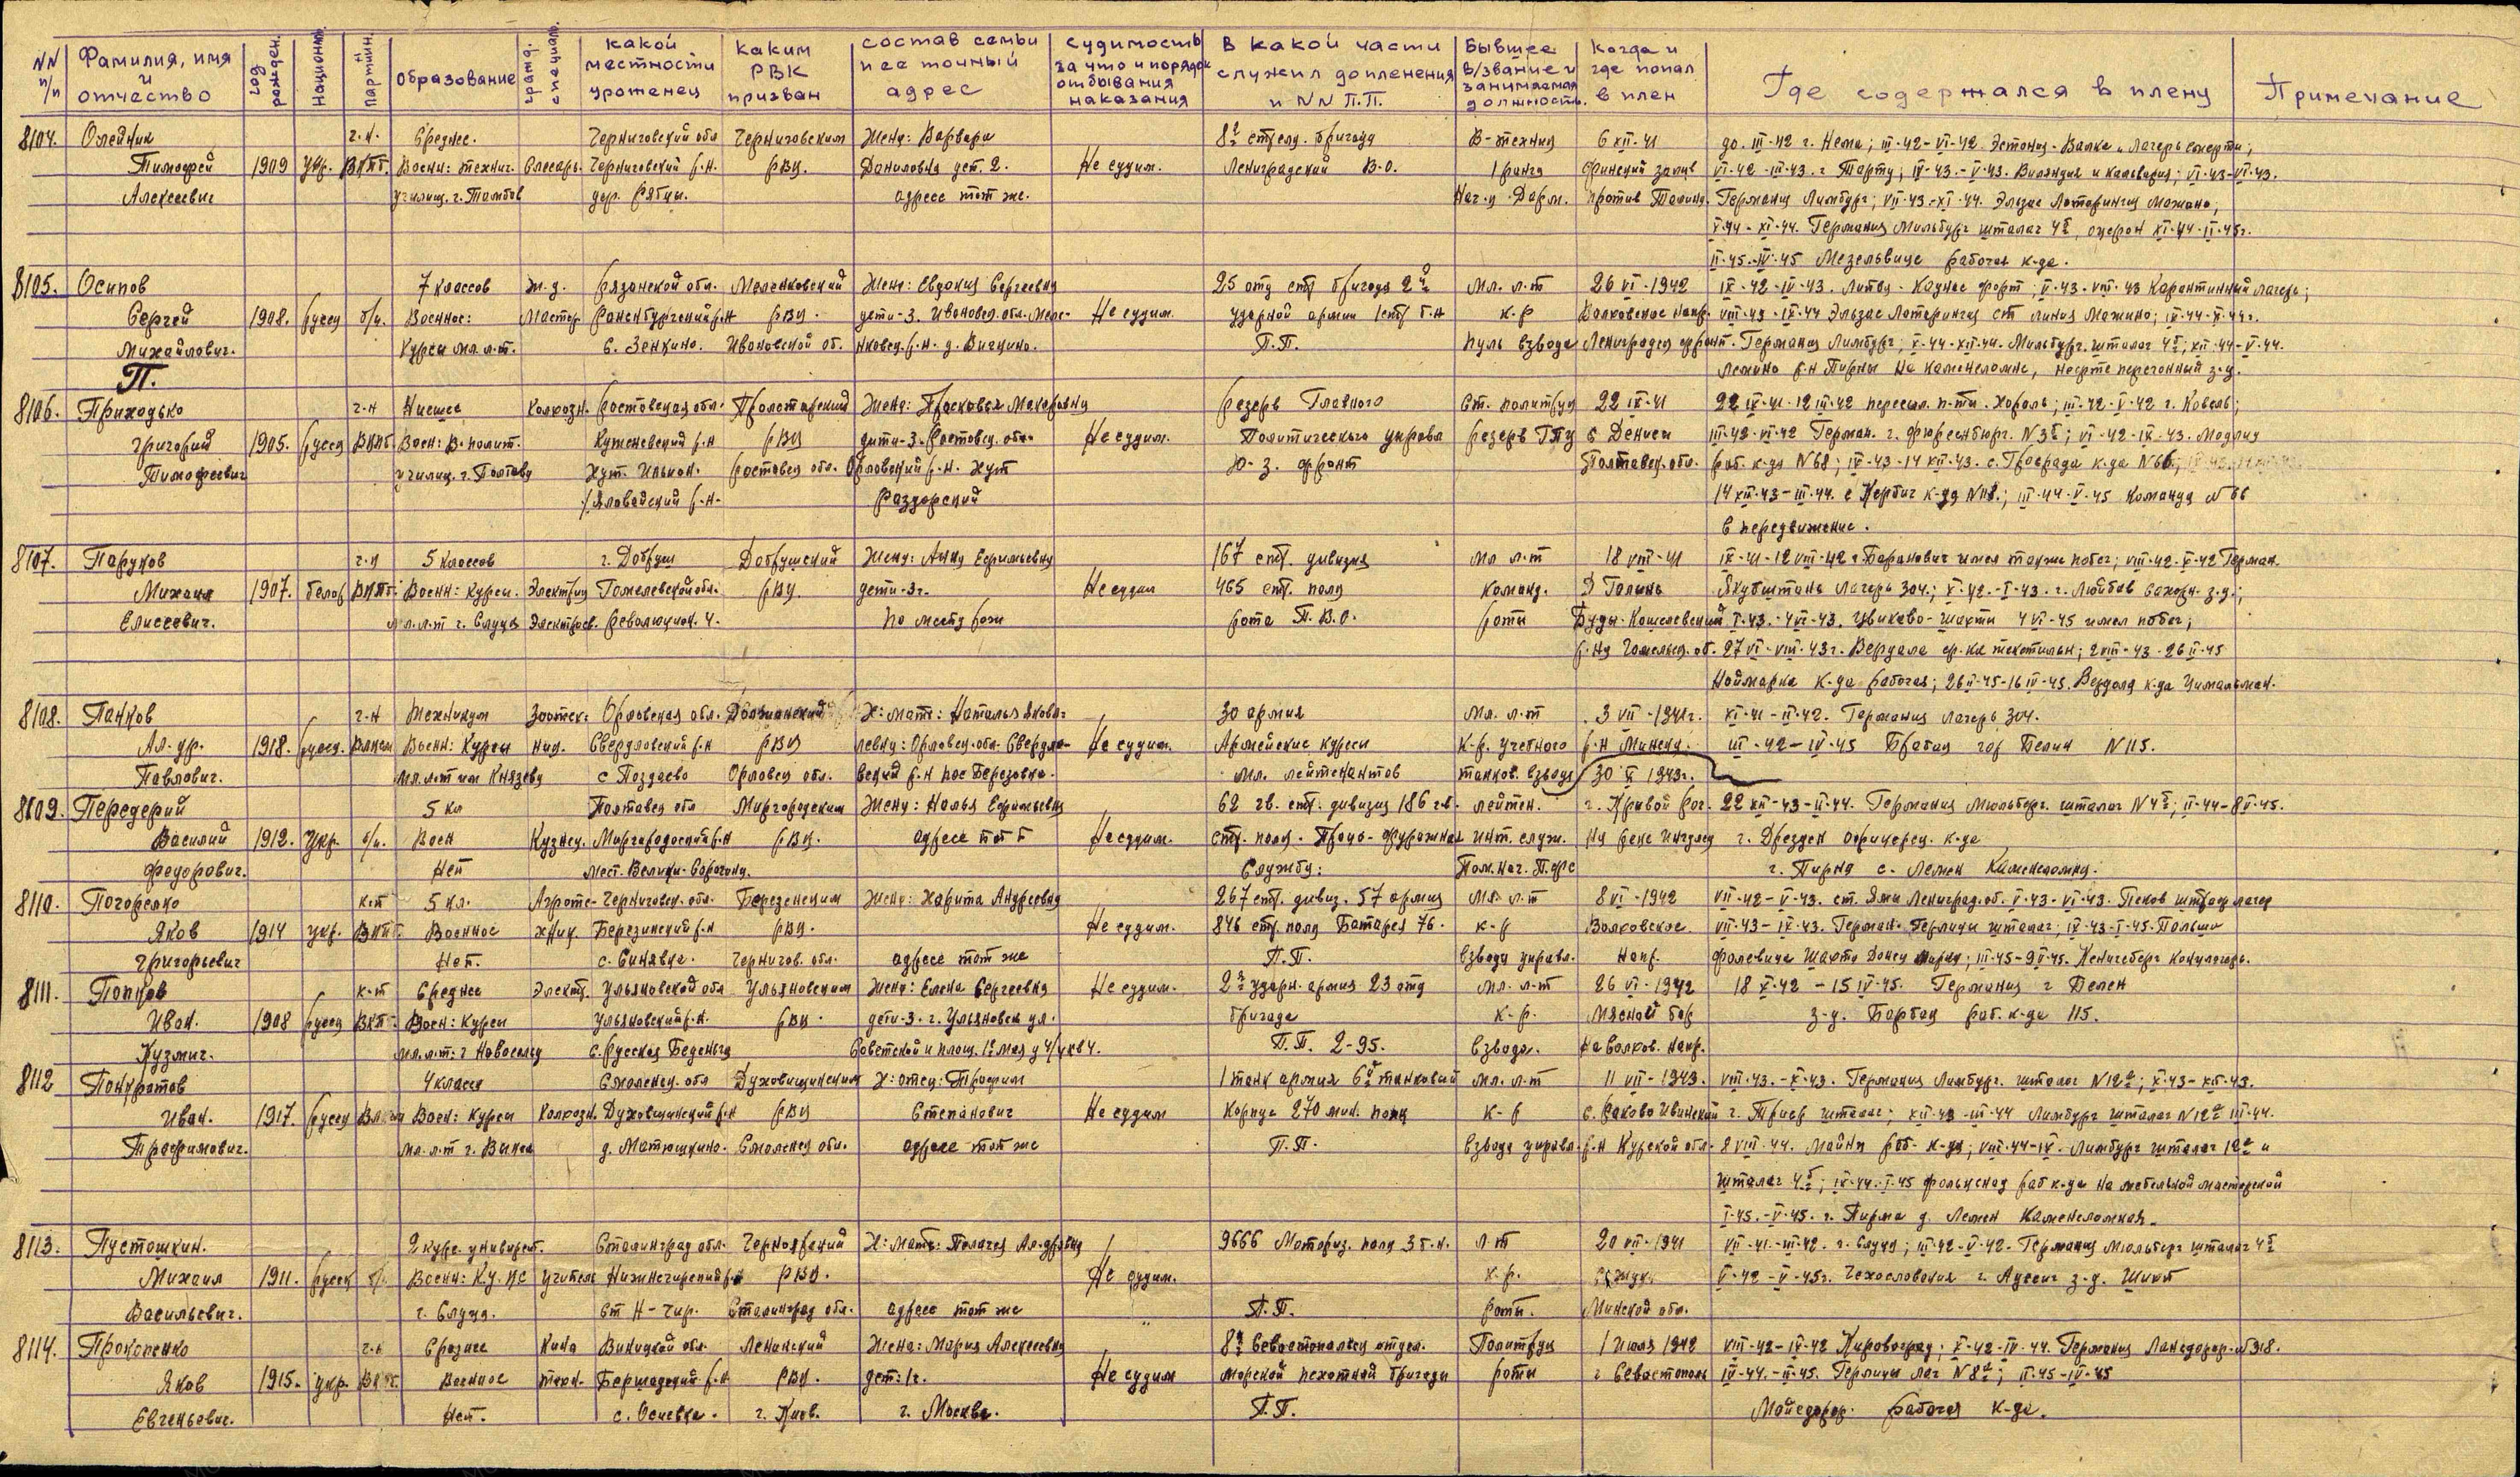 NN п/п | Фамилия, имя и отчество | год рожден. | Национальн. | Партийн. | Образование | гражд. специальн. | какой местности уроженец | каким РВК призван | состав семьи и ее точный адрес | судимость за что и порядок отбывания наказания | в какой части служил до пленения и NN п.п. | Бывшее в/звание и занимаемая должность. | Когда и где попал в плен | Где содержался в плену | Примечание
8104. Олейник ч.н. Среднее. Черниговский обл Черниговским Жена: Варвара 8я стрелк. бригада В-техник 6 XII-41 до. III-42 г. Немы; III-42-VI-42 Эстония-Валка "Лагерь смерти";
Тимофей 1909 укр. ВКПб. Военн: технич. Слесарь. Черниговский р.н. РВК. Даниловна дет. 2. Не судим. Ленинградский В.О. 1 ранга Финский залив VI-42-III-43. г Тарту; IV-43.-V-43. Виляндия и Кальвария; VI-43-VI-43.
Алексеевич училищ. г. Тамбов дер. Рябцы. адресс тот же. против Талина. Германия Лимбург; VII-43-XI-44. Эльзас Лотарингия Мажино;
XI-44. Германия Мильбург шталаг 4б, XI-44-II-45г.
II-45-IV-45 Мезельвице рабочая к-да.
8105. Осипов 7 классов ж.д. Рязанской обл. Меленковский Жена: Евдокия Сергеевна 25 отд стр бригада 2й Мл. л-т 26 VI-1942 IX-42-IV-43. Литва-Каунас форт; V-43-VIII-43 Карантинный лагерь;
Сергей 1908. русск б/п. Военное: Мастер Раненбургский р-н РВК. дети-3. Ивановск. обл. Меле- Не судим. ударной армии 1 стр б-н к-р Волховское напр. VIII-43-IV-44 Эльзас Лотарингия ст линия Мажино; IX-44-X-44г.
Михайлович. Курсы мл л-т. с. Зенкино. Ивановской об. нковск. р.н. д. П.П. пуль взвода Ленинградск фронт. Германия Лимбург; X-44-XII-44. Мильбург. шталаг 4б; XII-44-V-44.
П. р-н Пирны на каменеломне, нефте перегонный з-д.
8106. Приходько ч.н Низшее Колхозн. Ростовская обл. Пролетарский Жена: Прасковья Макаровна резерв Главного Ст. политрук 22 IX-41 22 IX-41-12 III-42 пересыл. п-ты. Хороль; III-42-V-42 г. Ковель;
Григорий 1905. русск ВКПб. Воен: В. полит. р-н РВК дети-3. Ростовск. обл. Не судим. Политического управл резерв ГПУ с Дениси III-42-VI-42 Герман. г. N3б; VI-42-IX-43.
Тимофеевич училищ. г. Полтава хут. Ростовск обл. Орловский р.н. хут Ю-З. фронт Полтавск. обл. раб. к-да N68; IX-43-14 XII-43. с. к-да N66;
р.н. Раздорский 14 XII-43-III-44. с к-да N118.; III-44-V-45 Команда N 66
в передвижение.
8107. Паруков ч.н 5 классов г. Добруш Добрушский Жена: Анна Ефимьевна 167 стр. дивизия мл л-т 18 VIII-41 IX-41-12 VIII-42 г. Баранович имел также побег; VIII-42-X-42 Герман.
Михаил 1907. белор ВКПб. Военн: Курсы. Электрик Гомелевской обл. РВК. дети-3г. Не судим 465 стр. полк Команд. лагерь 304.; X-42.-I-43. г. Любов сахарн. з-д.;
Елисеевич. мл. л-т г. Слуцк Электросв. Революцион. 4. по месту рож рота П.В.О. роты Буды-Кошелевский I-43.-4 VI-43. Цвикаво-шахты 4 VI-45 имел побег;
р.на Гомельск. об. 27 VI-VIII-43г. Вердала текстильн; 2 VIII-43-26 II-45
Ноймарка к-да рабочая; 26 II-45-16 IV-45. Вердала к-да
8108. Панков ч.н Техникум Зоотех- Орловская обл. Должанский Х: мать: Наталья Яков- 30 армия Мл. л-т 3 VII-1941г. XI-41-II-42. Германия лагерь 304.
Ал-др. 1918. русск. Военн: Курсы ник. Свердловский р-н РВК левна: Орловск. обл. Свердло- Не судим. Армейские курсы К-р. учебного р-н Минска. III-42-IV-45 Брабаг гор Белин N 115.
Павлович. мл. л-т им Князева с Поздеево Орловск обл. вский р.н пос Березовка. мл. лейтенантов танков. взвода
8109. Передерий 5 кл Полтавск обл Миргородским Жена: Ефимьевна 62 гв. стр. дивизия 186 гв. лейтен. 30 X 1943г. г. Кривой рог. 22 XII-43-II-44. Германия Мюльберг. шталаг N 4б; II-44-8 V-45.
Василий 1912. укр. б/п. Воен Кузнец. Миргородский р-н РВК. адресс тот ж Не судим. стр. полк-Продо-фуражная инт. служ. на реке Ингулец г. Дрезден офицерск. к-да
Федорович. Нет мест. Велики-Сорочинц. Служба: Пом. нач. П.ф.с г. Пирна с. Лемен Каменеломна.
8110. Погорелко к-т 5 кл. Агроте- Черниговск. обл. Березенским Жена: Харита Андреевна 267 стр. дивиз. 57 армия мл. л-т 8 VI-1942 VII-42-V-43. ст. Яма Ленинград. об. V-43-VI-43. Псков штраф лагер
Яков 1914 укр. ВКПб. Военное хник. Березинский р-н РВК. Не судим. 846 стр. полк Батарея 76. к-р Волховское VII-43-IX-43. Герман. Герлицы шталаг; IX-43-I-45. Польша
Григорьевич Нет. с. Синявка. Чернигов. обл. адресс тот же П.П. взвода управл. Напр. шахта; III-45-9 V-45. Кенигсберг
8111. Попков к-т Среднее Электр. Ульяновской обл Ульяновским Жена: Елена Сергеевна Не судим. 2я ударн. армия 23 отд мл. л-т 26 VI-1942 18 X-42-15 IV-45. Германия г Белен
Иван. 1908 русск ВКПб. Воен: Курсы Ульяновский р.н. РВК. дети-3. г. Ульяновск ул. бригада к-р. Мясной бор з-д. Брабаг раб. к-да 115.
Кузмич. мл. л-т: г Новосельск с. русская Беденьга Советской и площ. 1е мая д 4/ кв 4. П.П. 2-95. взвода. на Волхов. напр.
8112 Понкратов 4 класса Смоленск. обл Духовищинским Х: отец: Трофим 1 танк армия 6й танковый мл. л-т 11 VII-1943. VIII-43.-X-43. Германия Лимбург. шталаг N12а; X-43-XII-43.
Иван. 1917. русск Воен: Курсы Колхозн. Духовщинский р-н РВК Степанович Не судим корпус 270 мин. полк к-р с. Раково Ивинский г. Триер шталаг; XII-43-III-44 Лимбург шталаг N12а III-44.
Трофимович. мл. л-т г. Выкса д. Матюшкино. Смоленск обл. адресс тот же П.П. взвода управл. р.н Курской обл. 8 VIII-44. Майнц раб. к-да; VIII-44-IX. Лимбург шталаг 12а и
шталаг 4б; IX-44.-I-45 раб к-да на мебельной мастерской
I-45.-V-45. г. Пирма д. Лемен Каменеломная
8113. Пустошкин. 2 курс. университ. Сталинград обл. Чернояреций Х: мать: Пелагея Ал-дровна 9666 Моториз. полк 3 б-н. л-т 20 VII-1941 VII-41.-III-42. г. Слуцк; III-42-V-42. Германия Мюльберг шталаг 4б
Михаил 1911. русск б/п. Военн: учитель Нижнечирский р-н РВК. Не судим. к-р. V-42-V-45г. Чехословакия г. Аусcиг з-д. Шихт
Васильевич. г. Слуцк. ст Н-Чир. Сталинград обл. адресс тот же П.П. роты. Минской обл.
8114. Прокопенко ч.н Среднее Кино Виницкой обл. Ленинский Жена: Мария Алексеевна 8я Севастопольск отдел. Политрук 1 июля 1942 VIII-42-IX-42 Кировоград; X-42-IV-44. Германия Лансдорф-N318.
Яков 1915. укр. ВКПб. Военное техн. Бершадский р-н РВК. дет: 1г. Не судим морской пехотной бригады роты г Севастополь IV-44.-II-45. Герлицы лаг N8а; II-45-IV-45
Евгеньевич. Нет. с. Осиевка. г. Киев. г. Москва. П.П. рабочая к-да.